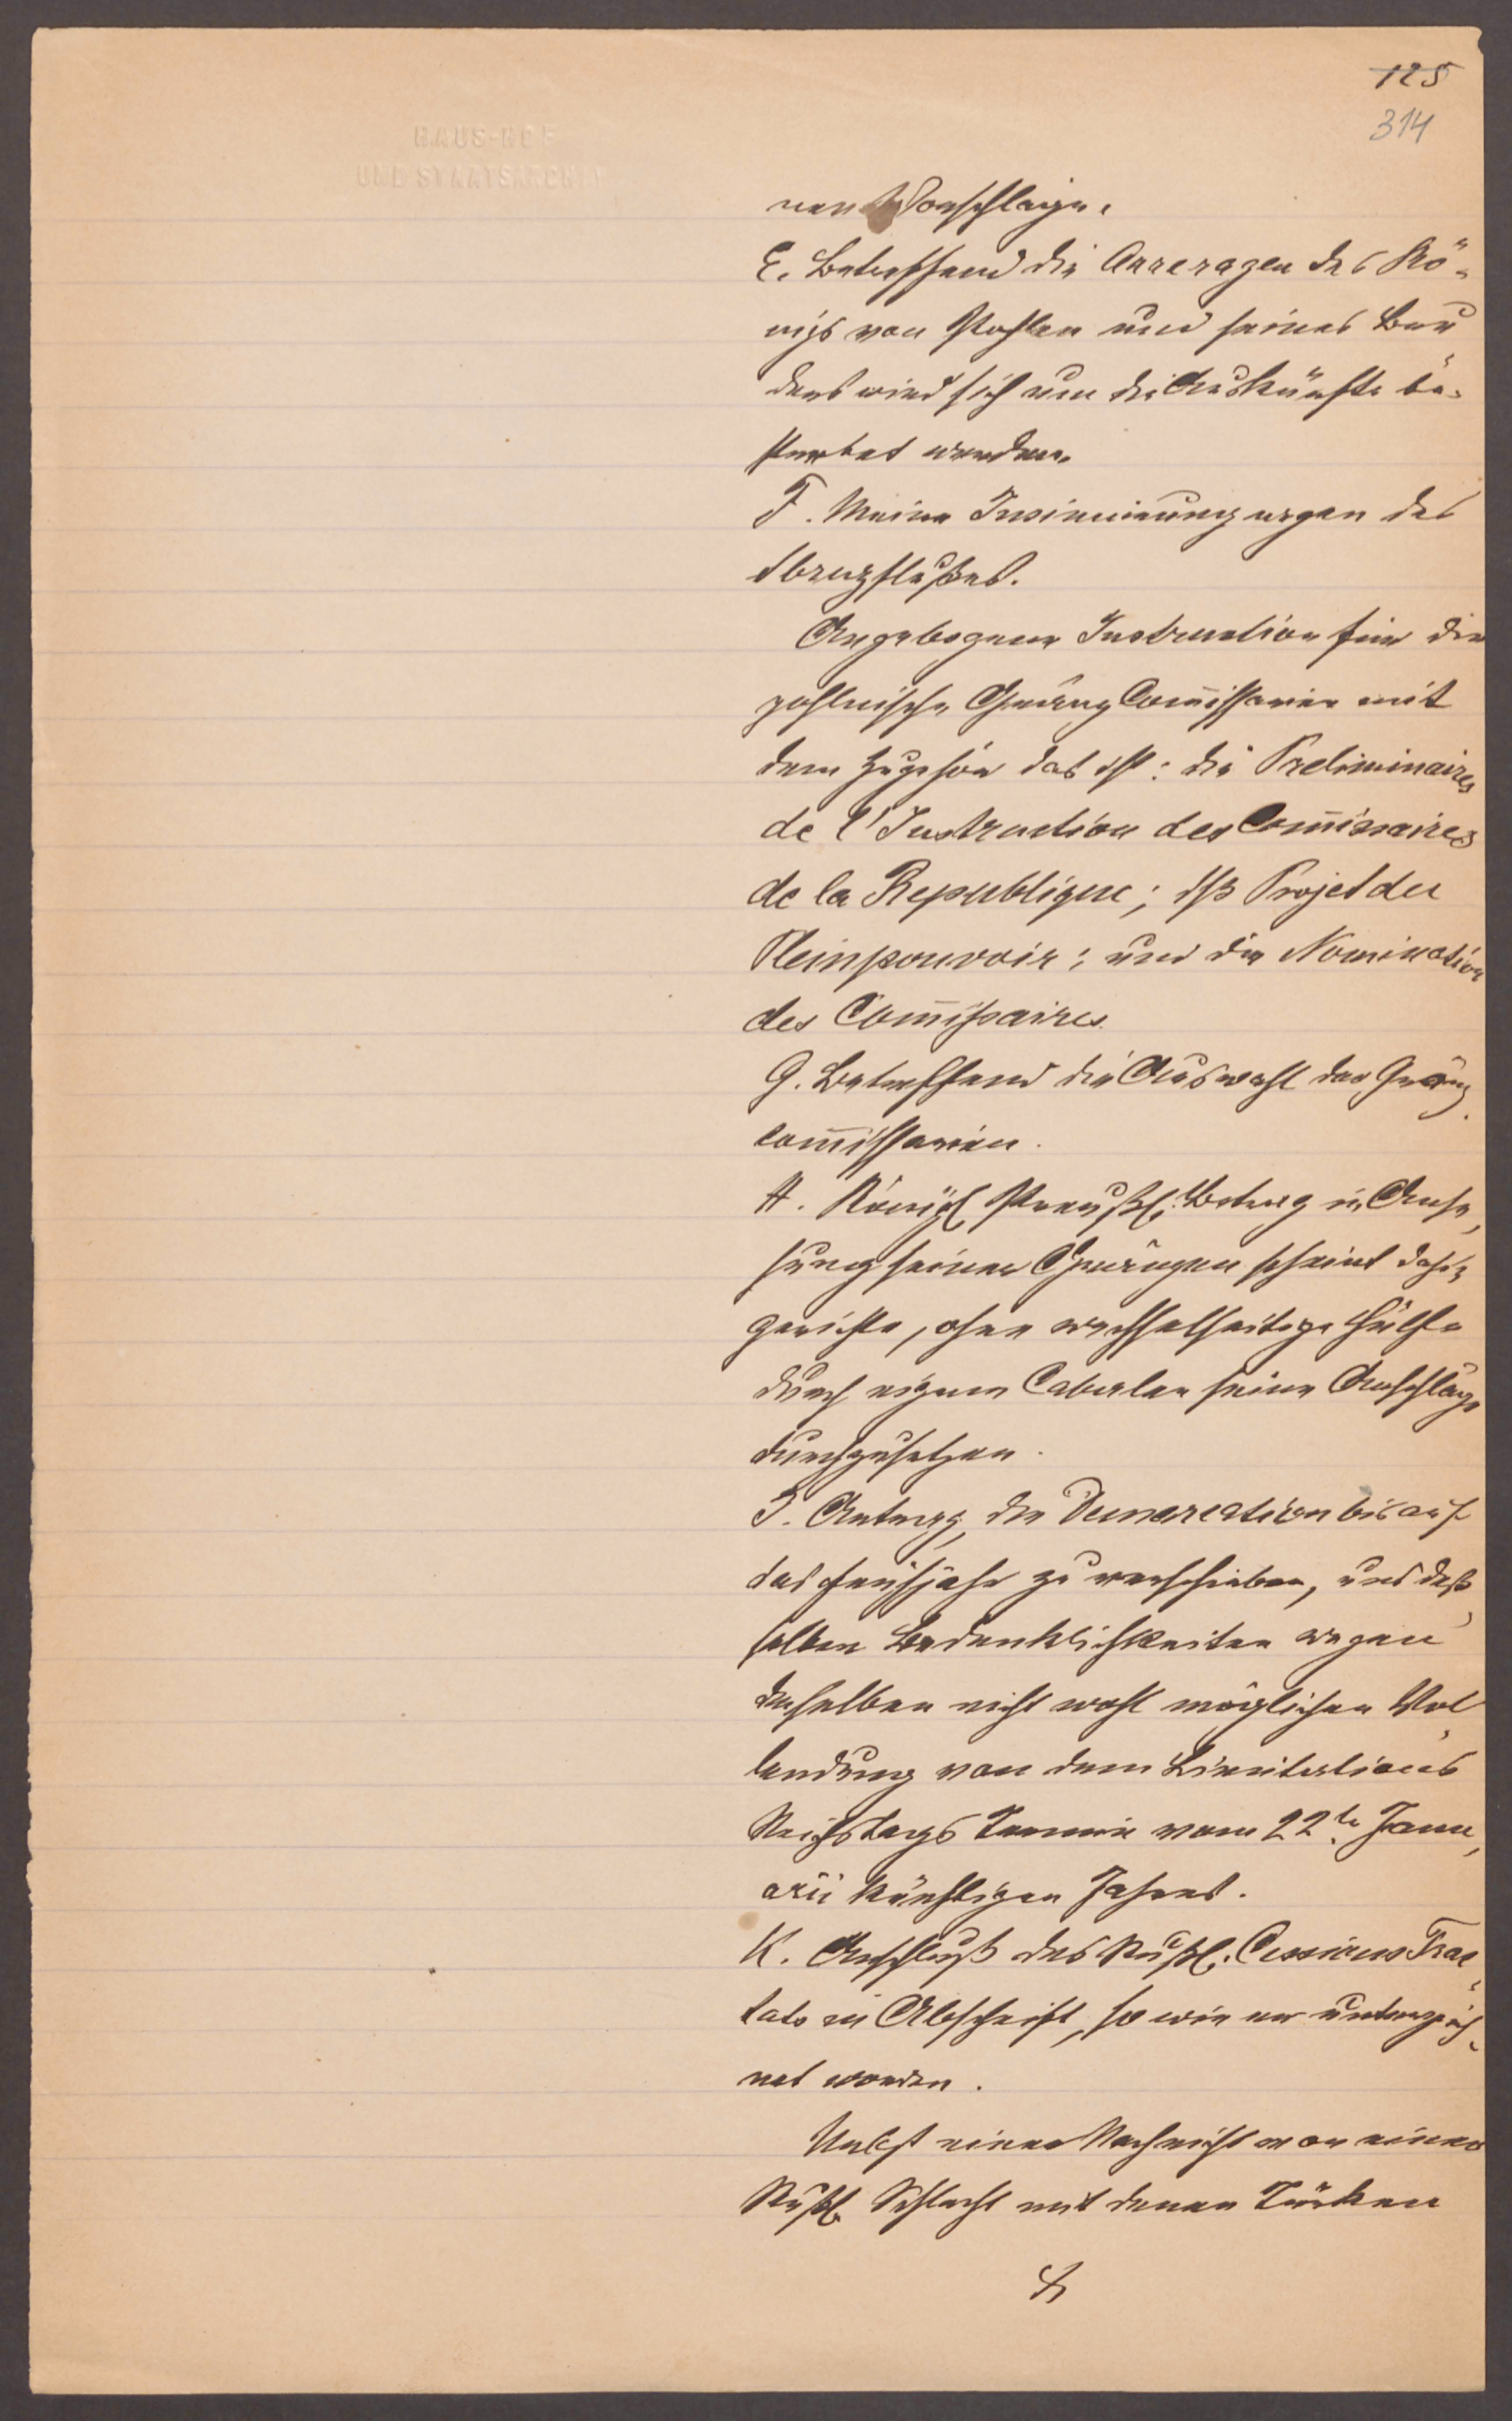 125
314
HAUS-HOF
UND STAATSARCHIV
nen Vorschlägen.
E. Betreffend die Arreragen des Kö-
nigs von Pohlen und seines Bru
ders wird sich um die Auskünfte be-
strebet werden.
F. Meine Insinuirung wegen des
Sbruzflußes.
Angebogene Instruction für die
pohlnische Gränz Com̅issarien mit
dem Zugehör das ist: die Preliminaires
de l'Instruction des Com̅issaires
de la Republique; Projet du
Pleinpouvoir; und die Nomination
des Com̅issaires
G. Betreffend die Auswahl der Gränz
com̅issarien.
H. Königl. Preußl. Betrag in Anse-
hung seiner Gränzen scheint dahin
gerichtet, ohne wechselseitige Hülfe
durch eigene Cabalen seine Anschläge
durchzusetzen.
I. Antrag, die Demarcation bis auf
das Frühjahr zu verschieben, und deß-
selben Bedenklichkeiten wegen
derselben nicht wohl möglichen Vol-
lendung von dem Limitations
Reichstags Termin vom 22ten Janu-
arii künftigen Jahres.
K. Anschluß des Rußl. Cessions Trac-
tats in Abschrift, so wie er unterzeich-
net worden.
Nebst einer Nachricht von einer
Rußl. Schlacht mit denen Türken